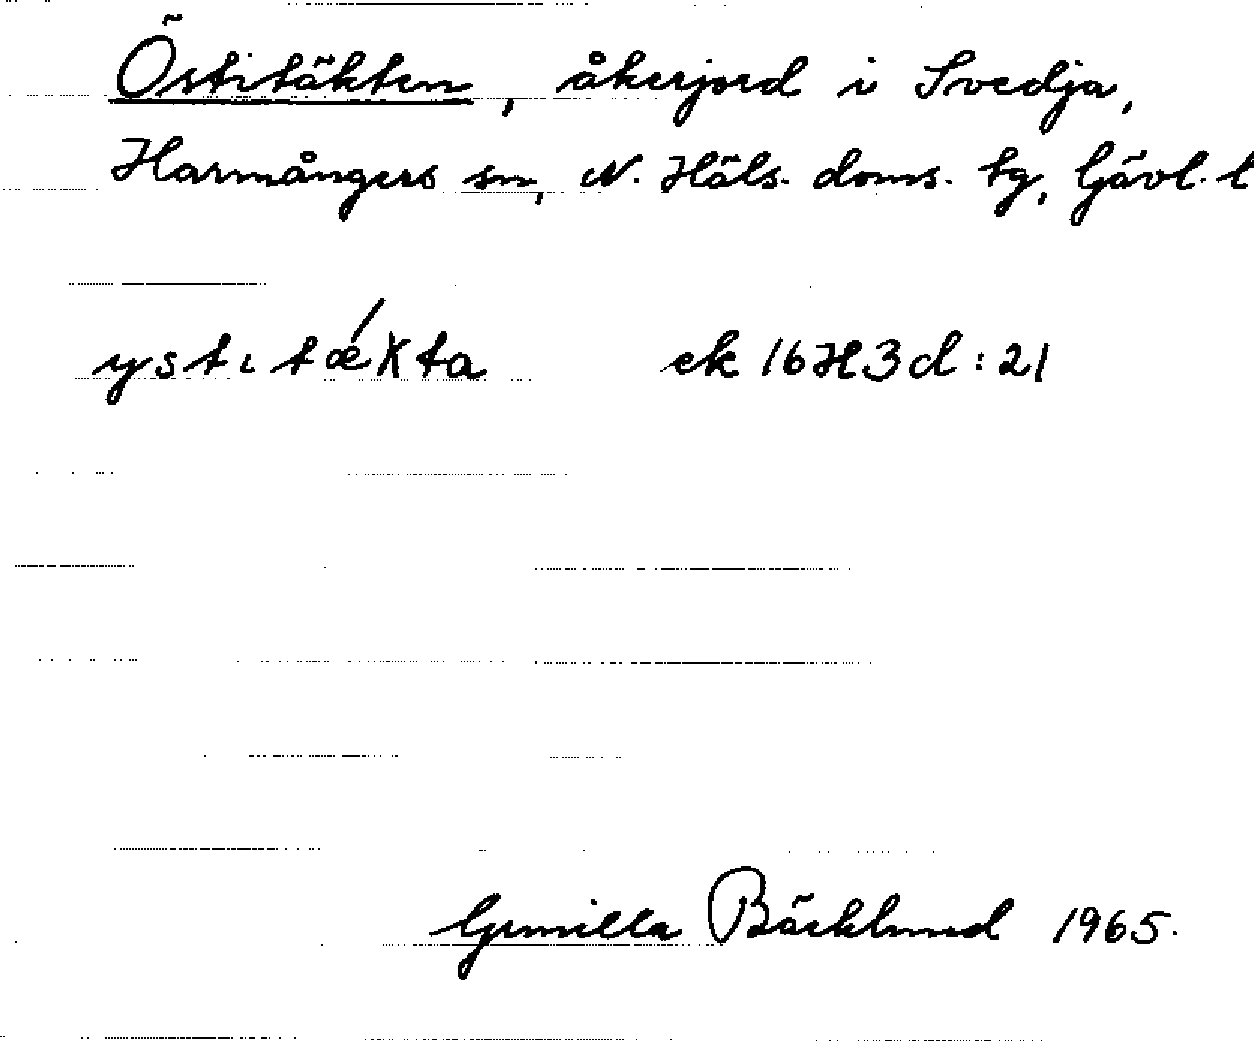 Östitäkten, åkerjord i Svedja,
Harmångers sn, N. Häls. doms. tg, Gävl. l
ystıtǽkta ek 16H3d:21
Gunilla Bäcklund 1965.